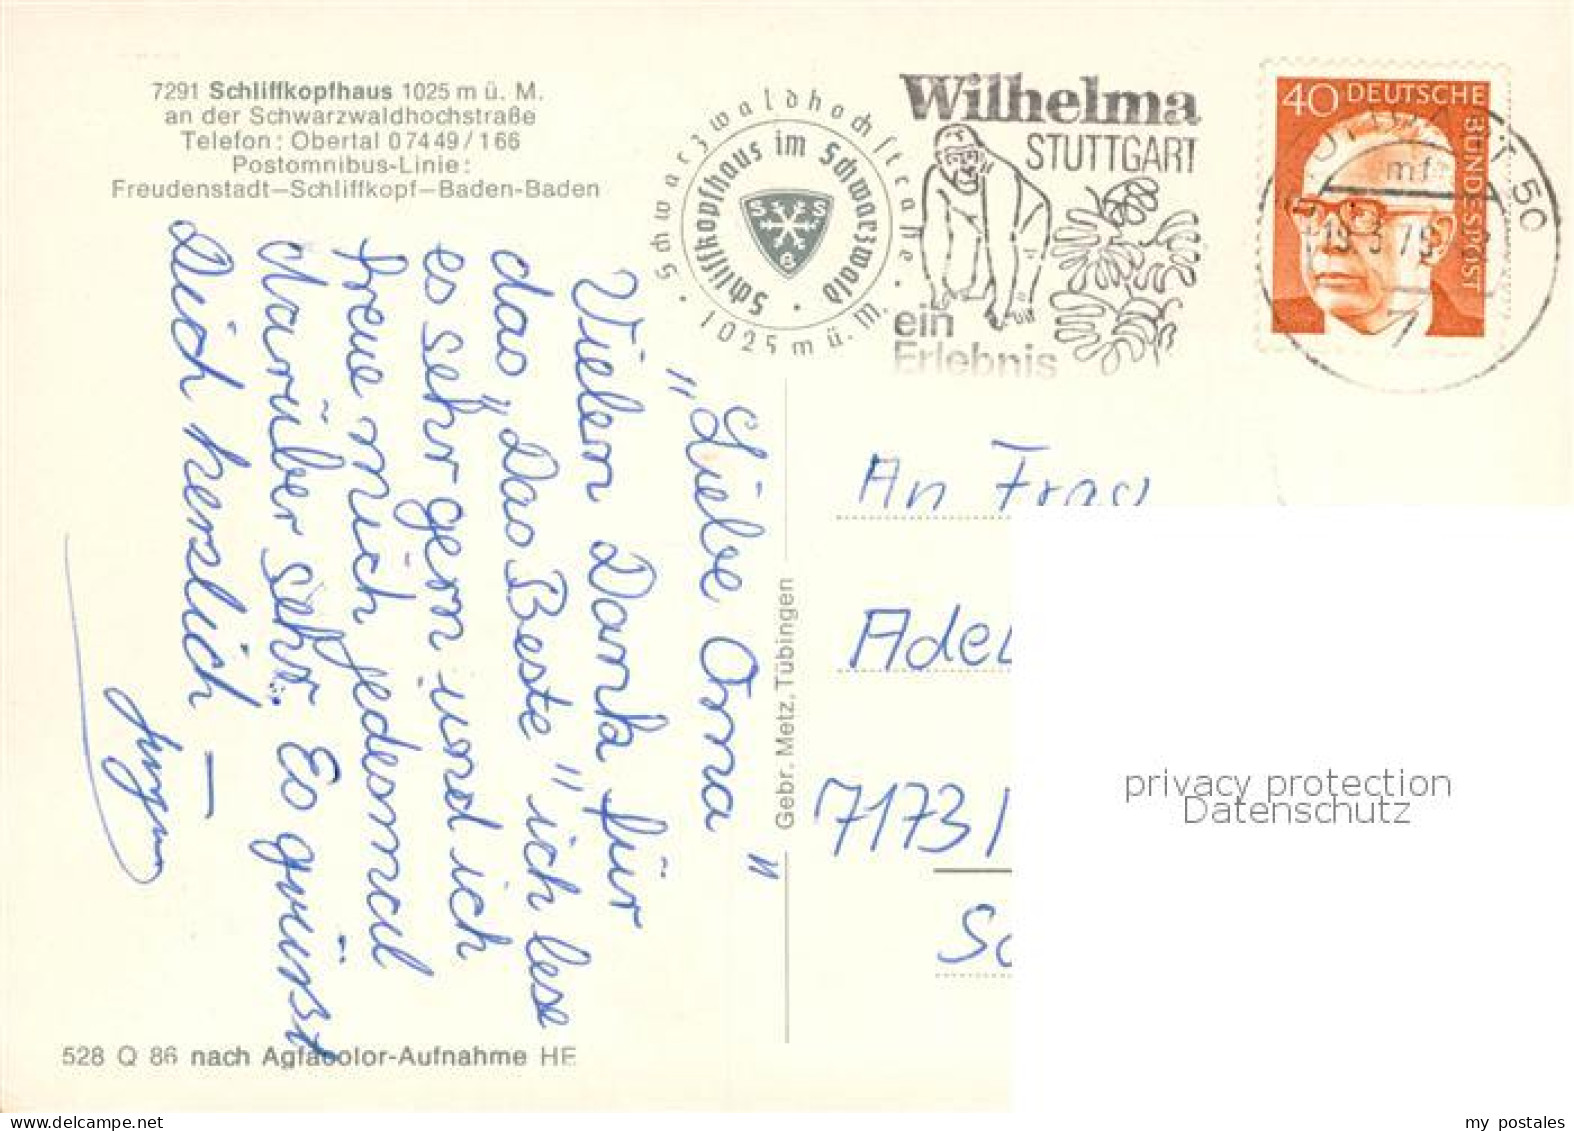 7291 Schliffkopfhaus 1025 m ü. M.
an der Schwarzwaldhochstraße
Telefon: Obertal 07449/166
Postomnibus-Linie:
Freudenstadt—Schliffkopf—Baden-Baden
· Schwarzwaldhochstraße · 1025 m ü. M.
Schliffkopfhaus im Schwarzwald ·
S S
6
Wilhelma
STUTTGART
ein
Erlebnis
40 DEUTSCHE
BUNDESPOST
STUTTGART 50
mf
19.3.76
7
"Liebe Oma"
Vielen Dank für
das "Das Beste" ich lese
es sehr gern und ich
freue mich jedesmal
darüber sehr. Es grüßt
Dich herzlich —
Jürgen
Gebr. Metz, Tübingen
An Frau
Adel
7173 /
Sc
528 Q 86 nach Agfacolor-Aufnahme HE
privacy protection
Datenschutz
www.delcampe.net
my_postales